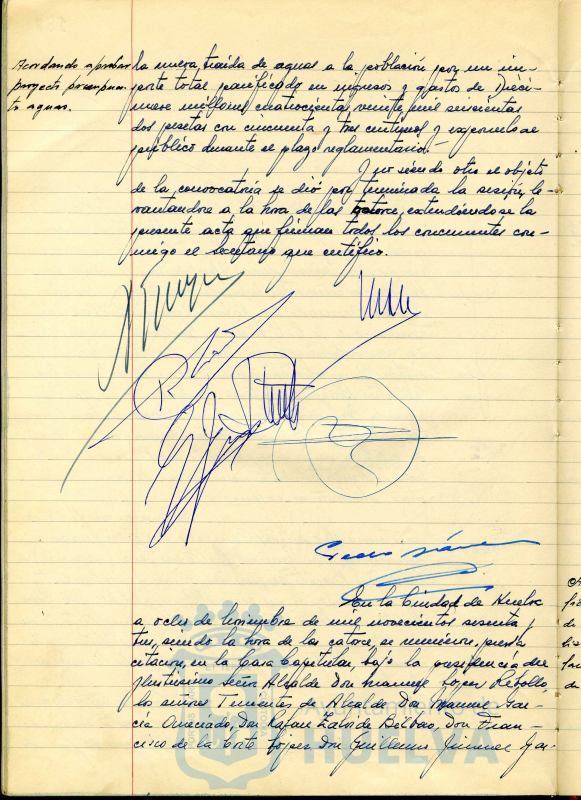 Acordando aprobar
proyecto presupues-
to aguas.
la nueva traida de aguas a la población por un im-
porte total panificado en ingresos y gastos de Dieci-
nueve millones cuatrocientas veinte mil seiscientas
dos pesetas con cincuenta y tres centimos y exponerlo al
público durante el plazo reglamentario.-
Y no siendo otro el objeto
de la convocatoria se dió por terminada la sesión, le-
vantandose a la hora de las catorce, extendiéndose la
presente acta que firman todos los concurrentes con-
migo el Secretario que certifico.
En la Ciudad de Huelva
a ocho de noviembre de mil novecientos sesenta y
tres, siendo la hora de las catorce, se reunieron, previa
citación, en la Casa Capitular, bajo la presidencia del
Ilustrísimo Señor Alcalde Don Manuel López Rebollo
los señores Tenientes de Alcalde Don Manuel Gar-
cia Don Rafael Zalvide Bilbao, Don Fran-
cisco de la Corte López Don Guillermo Jimenez Gar-
HUELVA